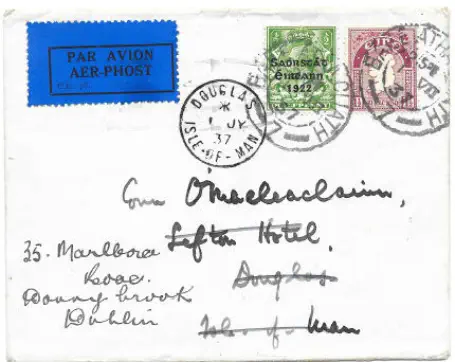 PAR AVION
AER-PHOST
Saorstát
Éireann
1922
DOUGLAS
JY
37
ISLE-OF-MAN
Omacleaclainn,
Sefton Hotel,
Douglas
Isle-of-Man
35. Marlboro
Road.
Donnybrook
Dublin